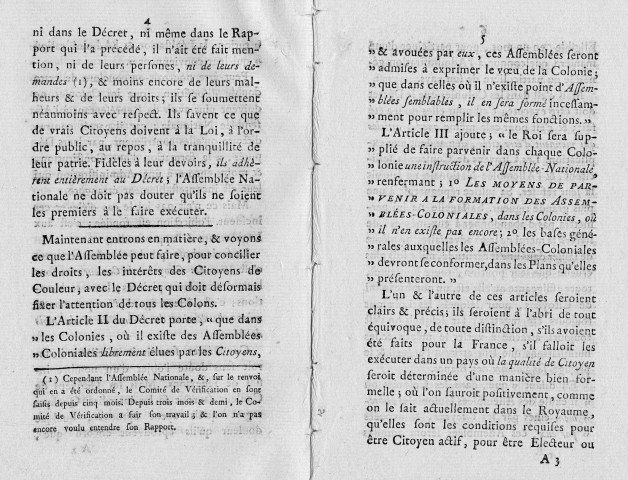 4
ni dans le Décret, ni même dans le Rap-
port qui l'a précédé, il n'ait été fait men-
tion, ni de leurs persones, ni de leurs de-
mandes (1), & moins encore de leurs mal-
heurs & de leurs droits; ils se soumettent
néanmoins avec respect. Ils savent ce que
de vrais Citoyens doivent à la Loi, à l'or-
dre public, au repos, à la tranquilité de
leur patrie. Fidèles à leur devoirs, ils adhè-
rent entièrement au Décret; l'Assemblée Na-
tionale ne doit pas douter qu'ils ne soient
les premiers à le faire exécuter.
Maintenant entrons en matière, & voyons
ce que l'Assemblée peut faire, pour concilier
les droits, les intérêts des Citoyens de
Couleur, avec le Décret qui doit désormais
fixer l'attention de tous les Colons.
L'Article II du Décret porte, « que dans
» les Colonies, où il existe des Assemblées
» Coloniales librement élues par les Citoyens,
(1) Cependant l'Assemblée Nationale, &, sur le renvoi
qui en a été ordonné, le Comité de Vérification en sont
saisis depuis cinq mois. Depuis trois mois & demi, le Co-
mité de Vérification a fait son travail; & l'on n'a pas
encore voulu entendre son Rapport.
5
» & avouées par eux, ces Assemblées seront
» admises à exprimer le vœu de la Colonie;
» que dans celles où il n'existe point d'Assem-
» blées semblables, il en sera formé incessam-
» ment pour remplir les mêmes fonctions. »
L'Article III ajoute; « le Roi sera sup-
» plié de faire parvenir dans chaque Colo-
» lonie une instruction de l'Assemblée-Nationale,
» renfermant; 1º LES MOYENS DE PAR-
» VENIR A LA FORMATION DES ASSEM-
» BLÉES-COLONIALES, dans les Colonies, où
» il n'en existe pas encore; 2º les bases géné-
» rales auxquelles les Assemblées-Coloniales
» devront se conformer, dans les Plans qu'elles
» présenteront. »
L'un & l'autre de ces articles seroient
clairs & précis; ils seroient à l'abri de tout
équivoque, de toute distinction, s'ils avoient
été faits pour la France, s'il falloit les
exécuter dans un pays où la qualité de Citoyen
seroit déterminée d'une manière bien for-
melle; où l'on sauroit positivement, comme
on le sait actuellement dans le Royaume,
qu'elles sont les conditions requises pour
être Citoyen actif, pour être Electeur ou
A 3